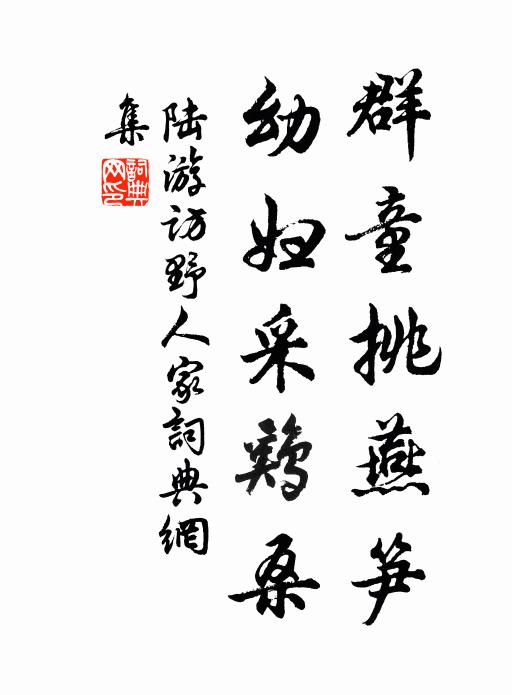 群童挑燕笋
幼妇采鸡桑
陆游访野人家詞典網
集
詞典网印